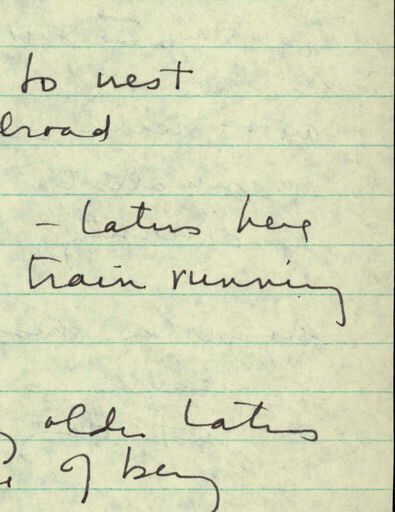 to nest
lroad
- Latins here
train running
older Latins
of being